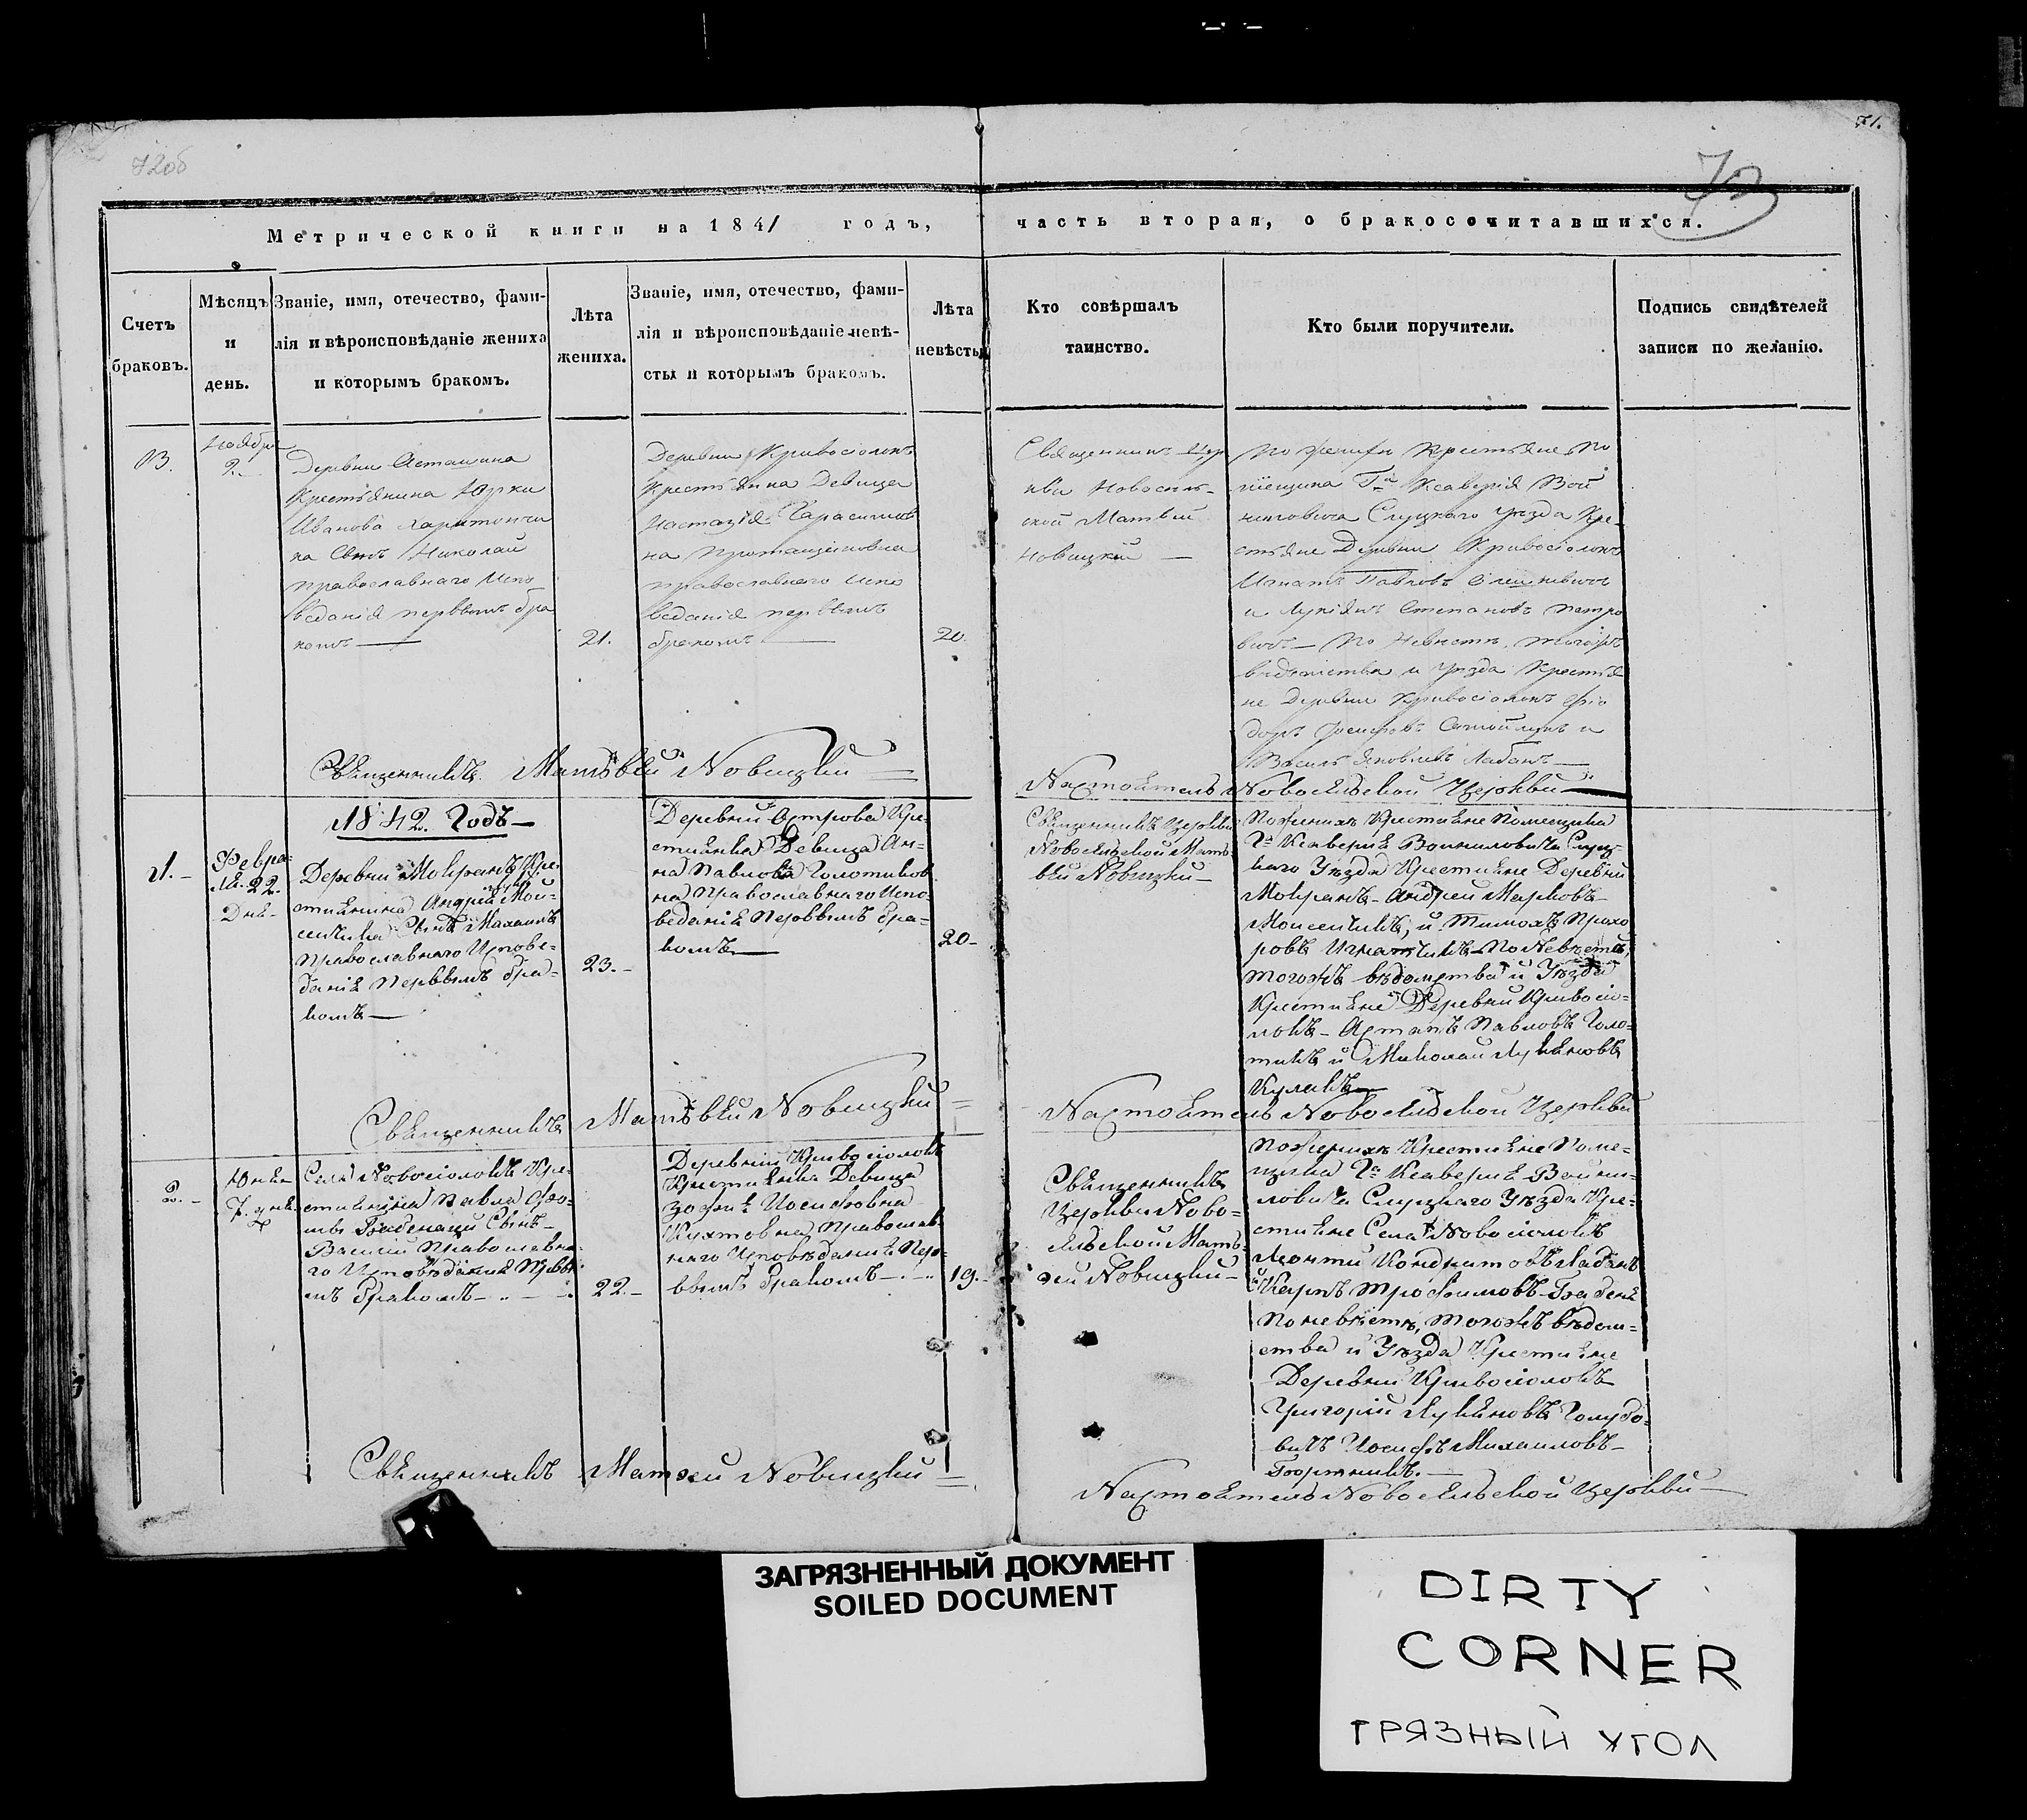 71.
72об
72
Метрической книги на 1841 годъ, часть вторая, о бракосочитавшихся.
Счетъ браковъ.
Мѣсяцъ и день.
Званіе, имя, отечество, фами-
лія и вѣроисповѣданіе жениха
и которымъ бракомъ.
Лѣта жениха.
Званіе, имя, отечество, фами-
лія и вѣроисповѣданіе невѣ-
сты и которымъ бракомъ.
Лѣта невѣсты
Кто совѣршалъ
таинство.
Кто были поручители.
Подпись свидѣтелей
записи по желанію.
Ноября
2.
Деревни
Крестьянина Юрки
Иванова Харитончи
ка Сынъ Николай
православнаго Испо
веданія первымъ бра
комъ —
21.
Деревни Кривосіолокъ
Крестьянка Девица
Настазія Гарасимов
на
православнаго испо
веданія первымъ
бракомъ —
20.
Священникъ Цер
кви Новосель-
ской Матвей
Новицкій —
По женихи Крестьяне По
мещика Гна Ксаверія Вой
ниловича Слуцкаго Уезда Кре-
стьяне Деревни Кривосіолокъ
Игнатъ Павловъ
и Лукіянъ Степановъ Петро
вичъ — По Невѣсти, тогожъ
ведомства и Уезда Крестья
не Деревни Кривосіолокъ Фіо
доръ и
Василь Яковлевъ Лабанъ —
Священникъ Матѳвей Новицкій
Настоятель Новосельской Церкви
1842. Годъ —
1. -
Февра-
ля. 22.
Дня-
Деревни Мокранъ Кре-
стьянина Андрея Мой-
сейчика Сынъ Михаилъ
Православнаго Испове-
данія Первымъ бра-
комъ —
23. -
Деревни Острова Кре-
стьянка Девица Ан-
на Павлова Голотиков
на Православнаго Испо-
веданія Первымъ бра-
комъ —
20-
Священникъ Церкви
Новосельской Матѳ-
вей Новицкій —
По женихъ Крестьяне Помещика
Гна Ксаверія Войниловича Слуц-
каго Уезда Крестьяне Деревни
Мокранъ — Андрей Марковъ
Мойсейчикъ, и Тимохъ Прохо
ровъ Игнатчикъ — По Невѣстѣ,
тогожъ вѣдомства и Уезда
Крестьяне Деревни Кривосіо-
локъ — Астапъ Павловъ Голо-
тикъ и Миколай Лукьяновъ
Куликъ —
Священникъ Матѳвей Новицкій
Настоятель Новосельской Церкви
2. -
Юня
7. дня.
Села Новосіолокъ Кре-
стьянина Павла Фро-
Сынъ
Василій Православна-
го Исповѣданія Первы-
мъ бракомъ —
22. -
Деревни Кривосіолокъ
Крестьянка Девица
Зофія Иосифовна
Кухтовна Православ-
наго Исповѣданія Пер-
вымъ бракомъ —
19. -
Священникъ
Церкви Ново-
сельской Матѳ-
ей Новицкій —
По женихѣ Крестьяне Поме-
щика Гна Ксаверія Войни-
ловича Слуцкаго Уезда Кре-
стьяне Села Новосіолокъ
Леонтій Кондратовъ Лабанъ
и Карпъ Трофимовъ
По невѣстѣ, тогожъ вѣдом-
ства и Уезда Крестьяне
Деревни Кривосіолокъ
Григорій Лукьяновъ Голубо-
вичъ Иосифъ Михаиловъ
Бортникъ. —
Священникъ Матѳей Новицкій
Настоятель Новосельской Церкви —
ЗАГРЯЗНЕННЫЙ ДОКУМЕНТ
SOILED DOCUMENT
DIRTY
CORNER
ГРЯЗНЫЙ УГОЛ